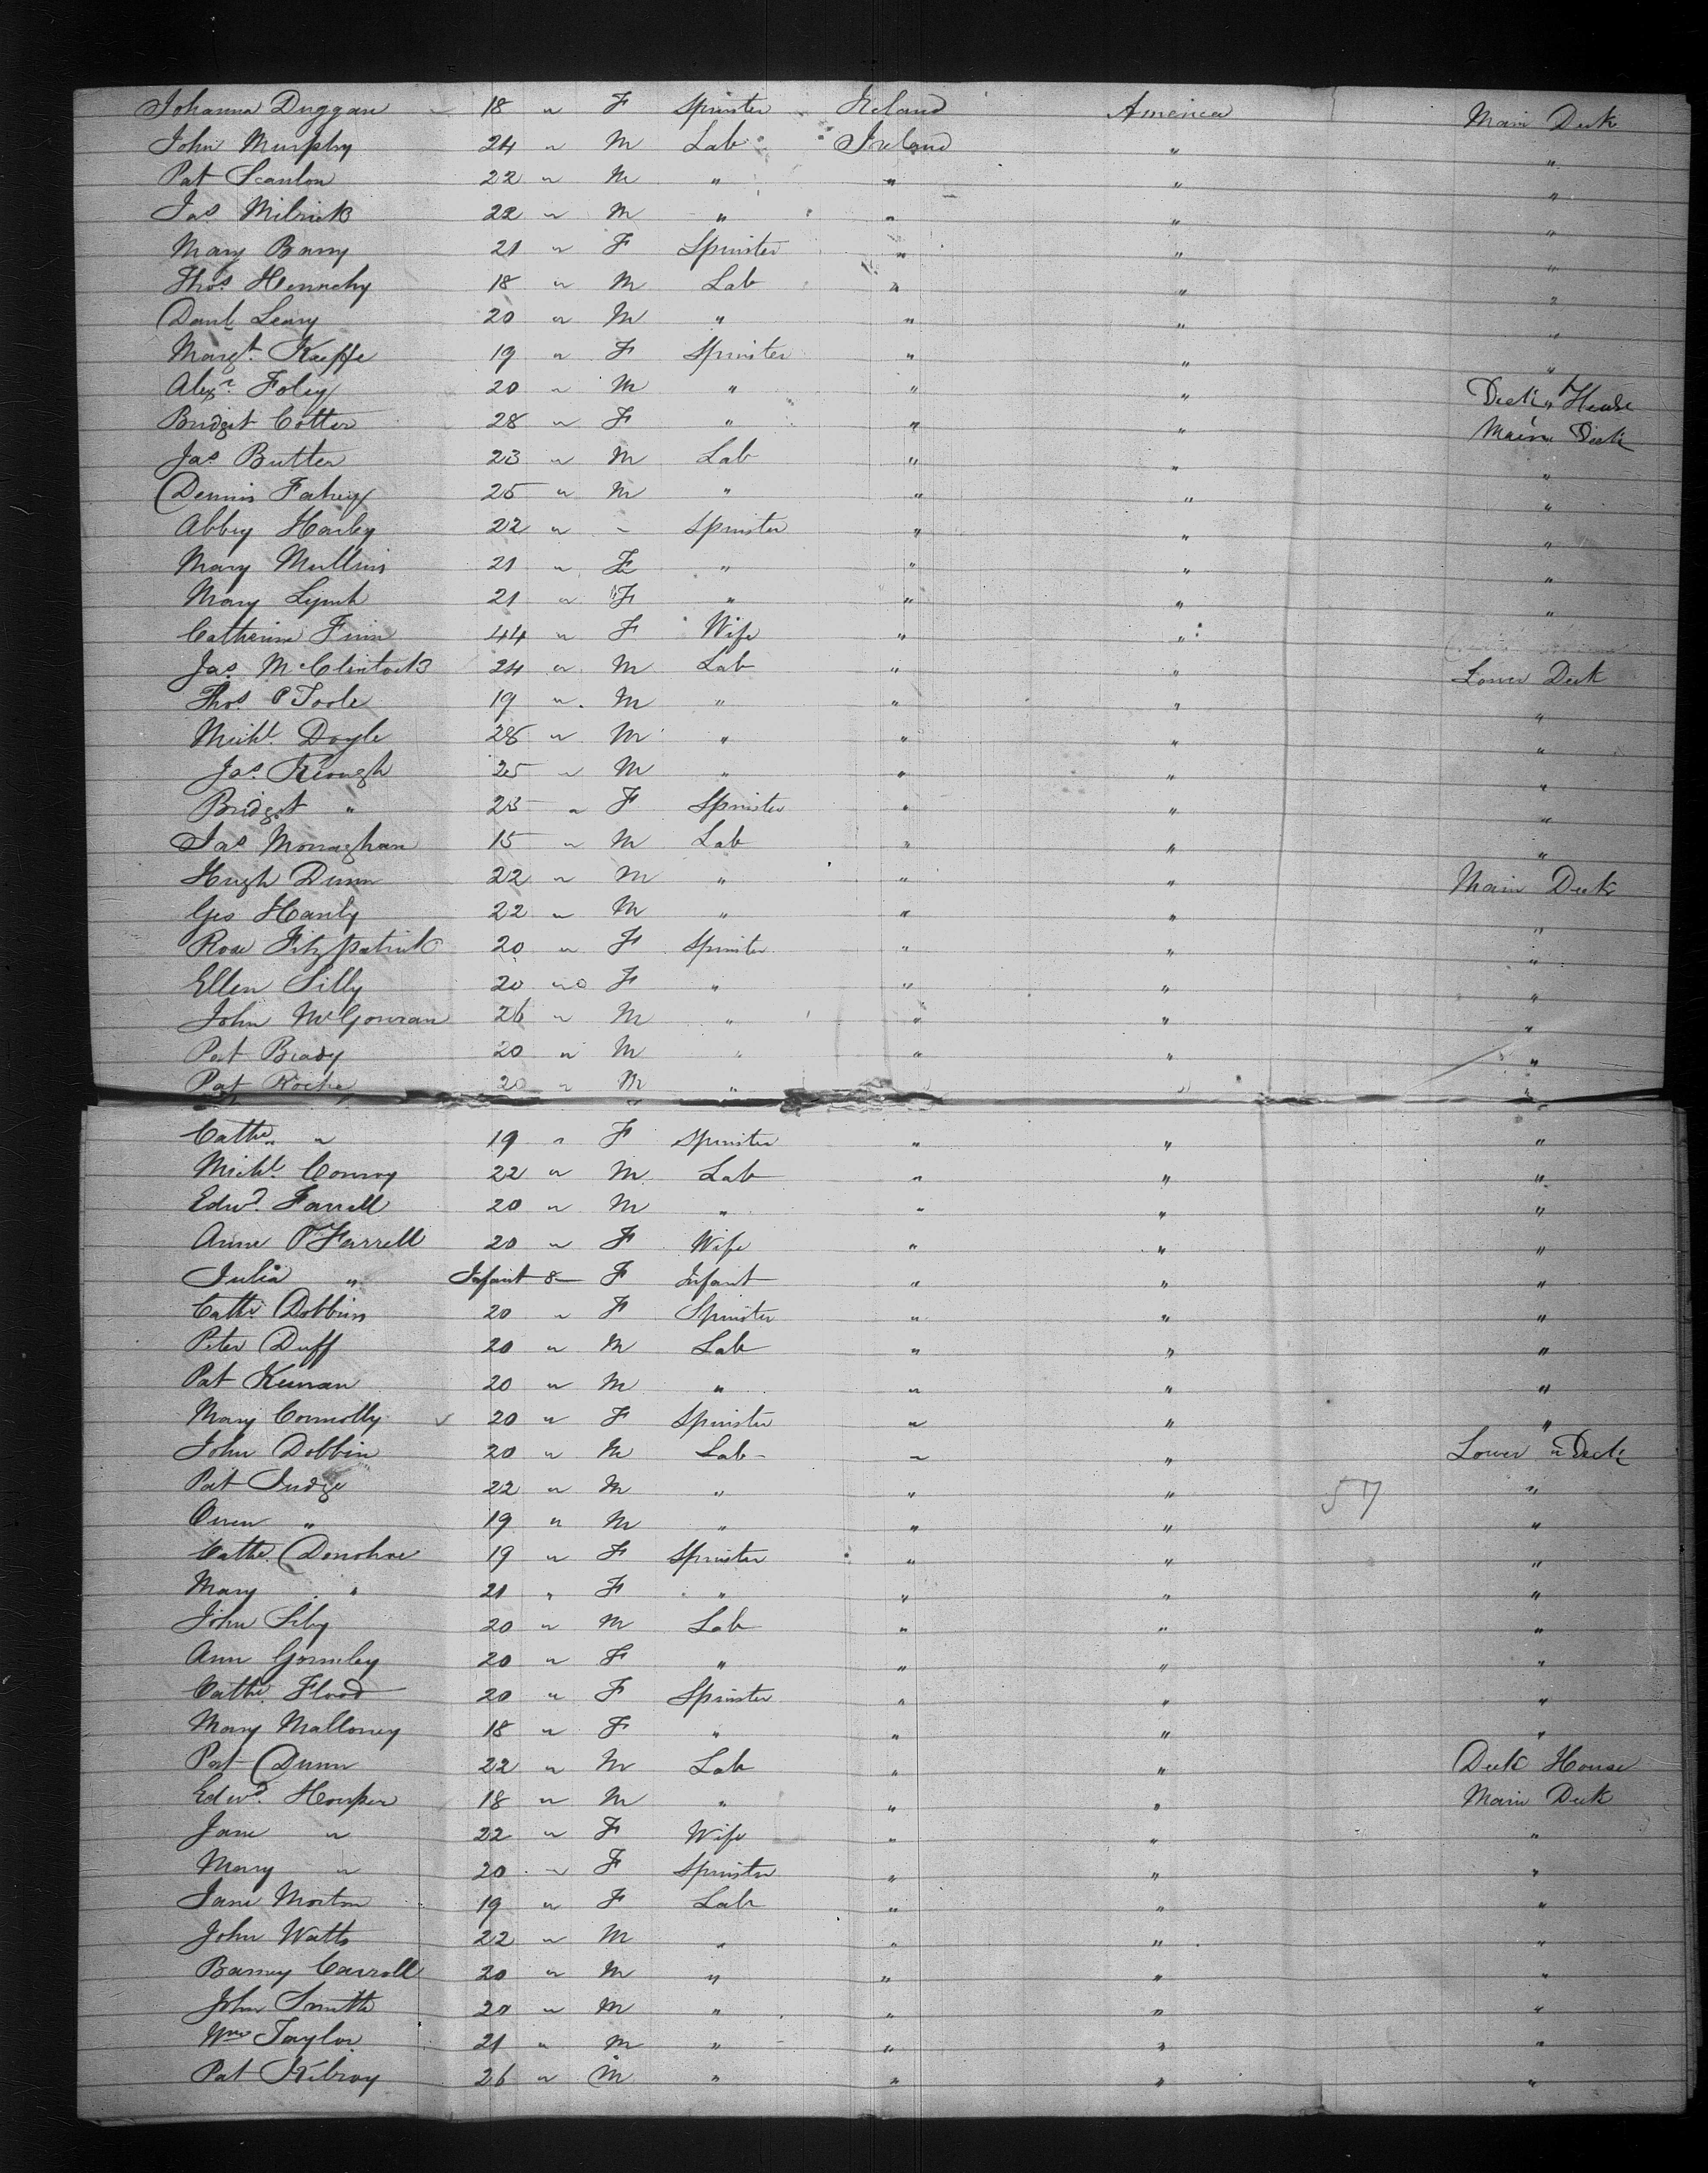 Johanna Duggan 18 " F Spinster Ireland America Main Deck
John Murphy 24 " M Lab Ireland " "
Pat Scanlon 22 " M " " " "
Jas Milrick 22 " M " " " "
Mary Barry 21 " F Spinster " " "
Thos. Hennehy 18 " M Lab " " "
Danl. Leary 20 " M " " " "
Margt. Keeffe 19 " F Spinster " " "
Alexr. Foley 20 " M " " " Deck " House
Bridget Cotter 28 " F " " " Main Deck
Jas. Butler 23 " M Lab " " "
Dennis Fahey 25 " M " " " "
Abbey Harley 22 " " Spinster " " "
Mary Mullins 21 " F " " " "
Mary Lynch 21 " F " " " "
Catherine Finn 44 " F Wife " "
Jas. McClintock 24 " M Lab " " Lower Deck
Thos. O'Toole 19 " M " " " "
Michl. Doyle 28 " M " " " "
Jas. Keough 25 " M " " " "
Bridget " 23 " F Spinster " " "
Jas Monaghan 15 " M Lab " " "
Hugh Dunn 22 " M " " " Main Deck
Geo Hanly 22 " M " " " "
Rose Fitzpatrick 20 " F Spinster " " "
Ellen Lilly 20 " F " " " "
John McGowran 26 " M " " " "
Pat Brady 20 " M " " " "
Pat Roche 20 " M " " " "
Cathe. " 19 " F Spinster " " "
Michl. Conroy 22 " M Lab " " "
Edwd. Farrell 20 " M " " " "
Anne O'Farrell 20 " F Wife " " "
Julia " Infant 8 F Infant " " "
Cathe Dobbins 20 " F Spinster " " "
Peter Duff 20 " M Lab " " "
Pat Keenan 20 " M " " " "
Mary Connolly 20 " F Spinster " " "
John Dobbin 20 " M Lab " " Lower " Deck
Pat Judge 22 " M " " " 57 "
Owen " 19 " M " " " "
Cathe. Donohoe 19 " F Spinster " " "
Mary " 21 " F " " " "
John Siby 20 " M Lab " " "
Ann Gormley 20 " F " " " "
Cathe. Flood 20 " F Spinster " " "
Mary Malloney 18 " F " " " "
Pat Dunn 22 " M Lab " " Deck House
Edwd. Hooper 18 " M " " " Main Deck
Jane " 22 " F Wife " " "
Mary " 20 " F Spinster " " "
Jane Morton 19 " F Lab " " "
John Watts 22 " M " " " "
Barney Carroll 20 " M " " " "
John Smith 20 " M " " " "
Wm Taylor 21 " M " " " "
Pat Kilroy 26 " M " " " "